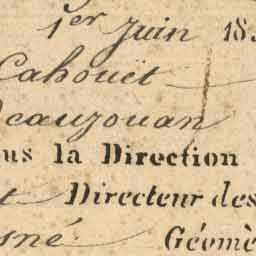 1er Juin 18
Cahouët
Beauzouan
ous la Direction
t Directeur des
sné. Géomè